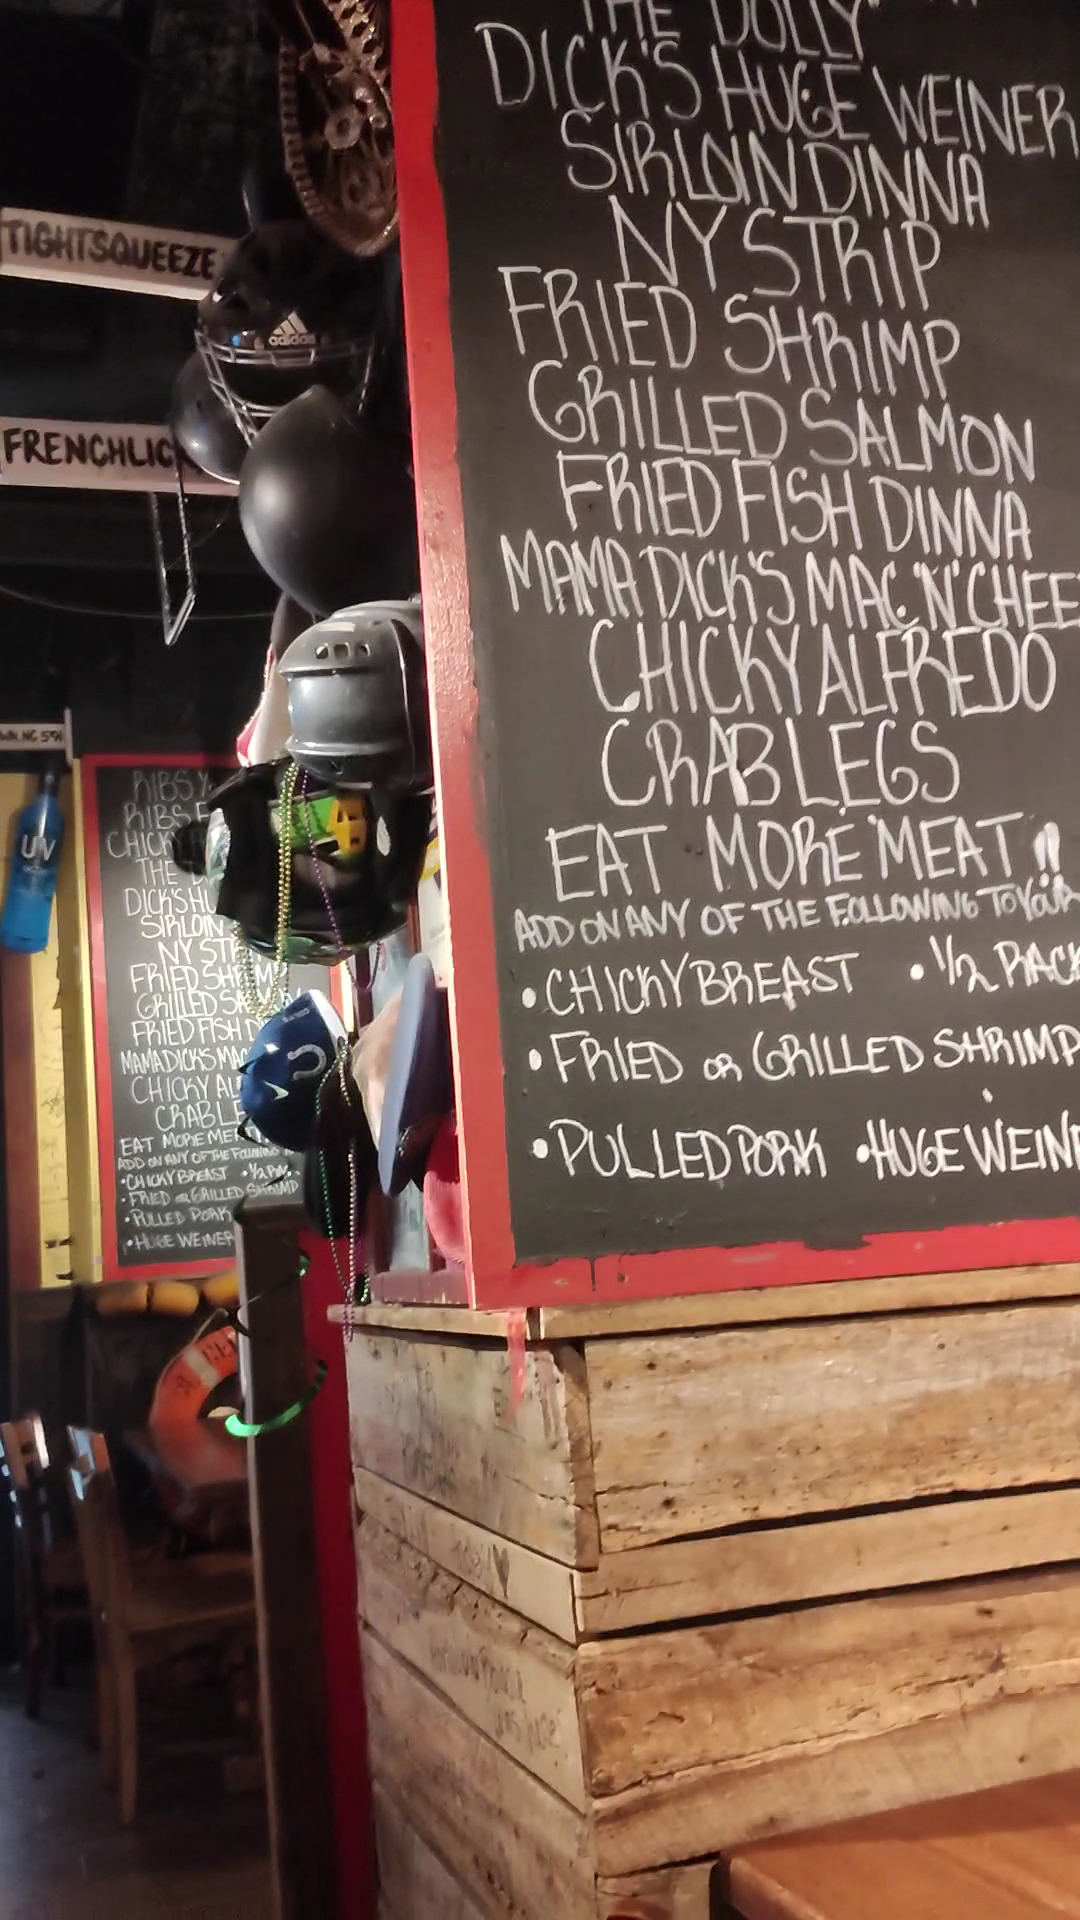 THE DOLLY"
DICK'S HUGE WEINER
SIRLOIN DINNA
NY STRIP
FRIED SHRIMP
GRILLED SALMON
FRIED FISH DINNA
MAMA DICK'S MAC 'N' CHEE
CHICKY ALFREDO
CRAB LEGS
EAT MORE MEAT!!
ADD ON ANY OF THE FOLLOWING TO YOUR
• CHICKY BREAST • 1/2 RACK
• FRIED OR GRILLED SHRIMP
• PULLED PORK • HUGE WEINE
TIGHTSQUEEZE
adidas
FRENCHLIC
UV
RIBS
RIBS
CHICK
THE D
DICK'S HU
SIRLOIN
NY STR
FRIED SHRIM
GRILLED SALM
FRIED FISH D
MAMA DICK'S MAC
CHICKY AL
CRAB LE
EAT MORE ME
ADD ON ANY OF THE FOLLOWING
• CHICKY BREAST • 1/2 RA
• FRIED OR GRILLED SHRIMP
• PULLED PORK
• HUGE WEINER